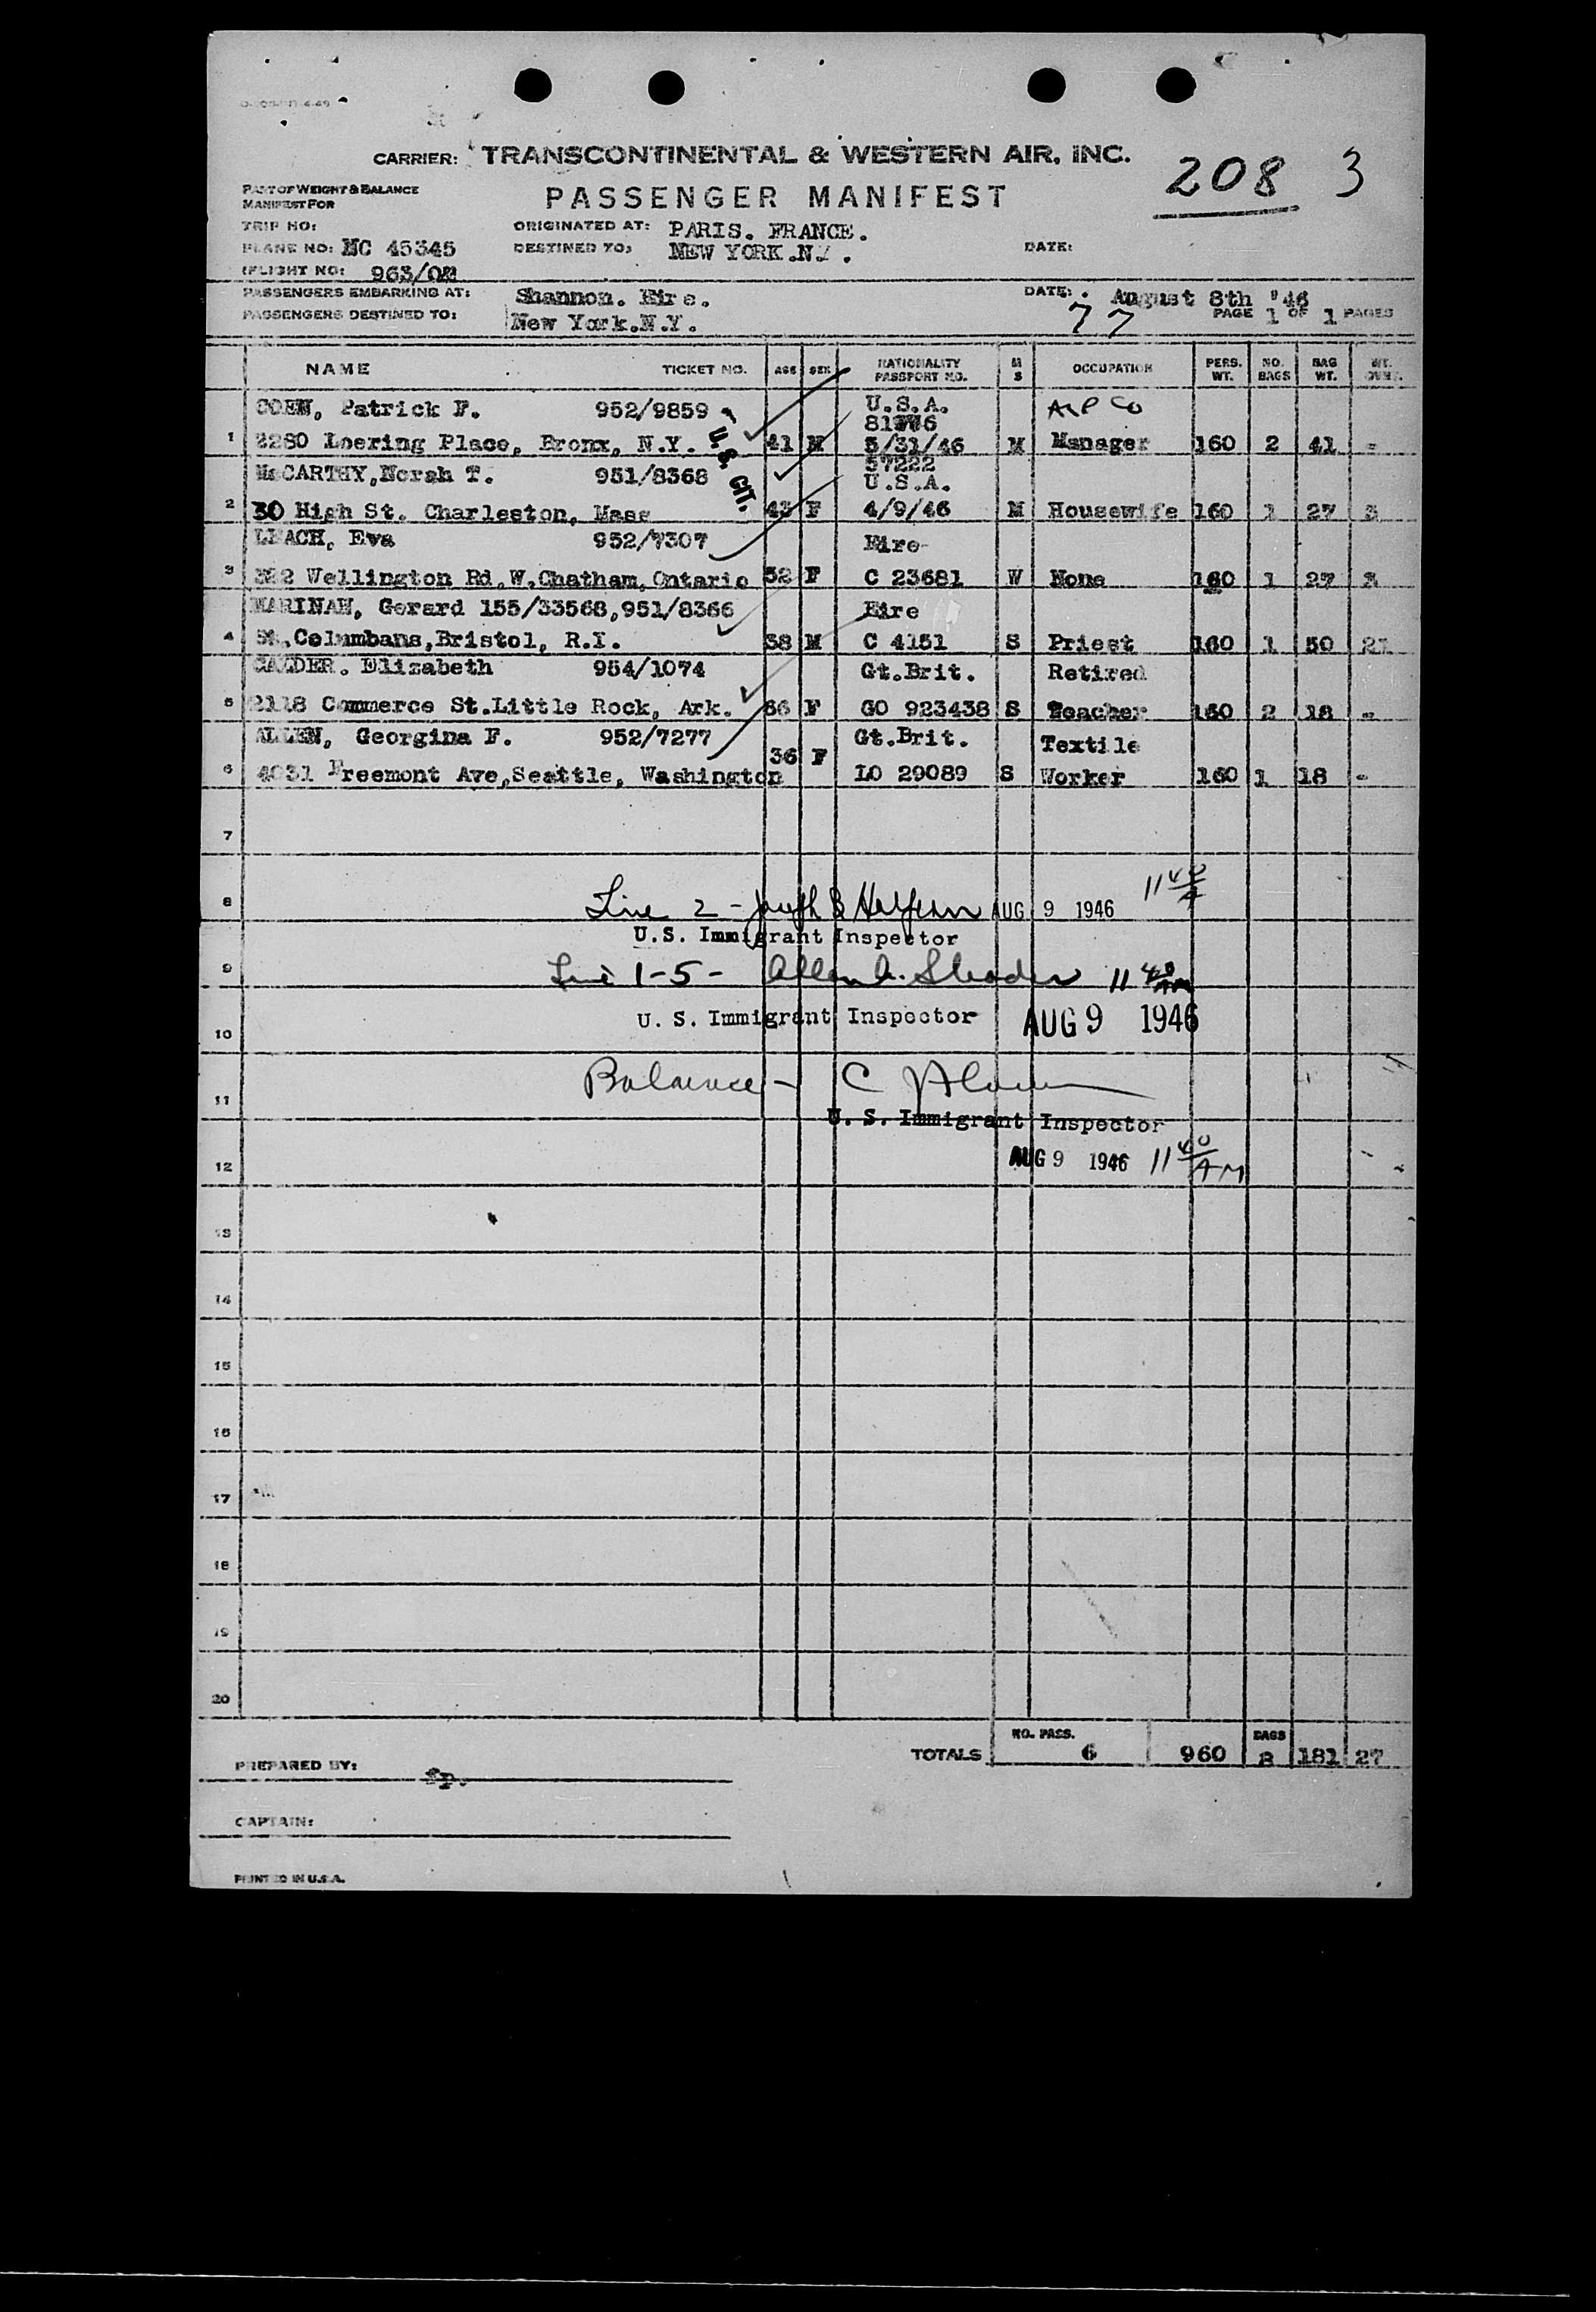 CARRIER: TRANSCONTINENTAL & WESTERN AIR, INC.
208 3
PART OF WEIGHT & BALANCE
MANIFEST FOR
PASSENGER MANIFEST
TRIP NO:
ORIGINATED AT: PARIS. FRANCE.
PLANE NO: NC 45345
DESTINED TO: NEW YORK.N.Y.
DATE:
FLIGHT NO: 963/08
PASSENGERS EMBARKING AT: Shannon. Eire.
DATE: August 8th '46
PASSENGERS DESTINED TO: New York.N.Y.
77
PAGE 1 OF 1 PAGES
NAME TICKET NO. AGE SEX NATIONALITY PASSPORT NO. M S OCCUPATION PERS. WT. NO. BAGS BAG WT. WT. OVWT.
COEN, Patrick F. 952/9859 U.S.A.
U.S. CIT.
1 2280 Loering Place, Bronx, N.Y. 41 M 5/31/46 M Manager 160 2 41 -
McCARTHY, Norah T. 951/8368 57222
U.S.A.
2 30 High St. Charleston, Mass 43 F 4/9/46 M Housewife 160 1 27 3
LEACH, Eva 952/7307 Eire
3 Wellington Rd,W.Chatham,Ontario 52 F C 23681 W None 160 1 27 3
MARINAN, Gerard 155/33568,951/8366 Eire
4 St.Columbans,Bristol, R.I. 38 M C 4151 S Priest 160 1 50 21
CALDER. Elizabeth 954/1074 Gt.Brit. Retired
5 2118 Commerce St.Little Rock, Ark. 66 F GO 923438 S Teacher 160 2 18 -
ALLEN, Georgina F. 952/7277 Gt.Brit. Textile
6 4031 Freemont Ave,Seattle, Washington 36 F LO 29089 S Worker 160 1 18 -
7
8 Line 2 - Joseph B AUG 9 1946 11 40 A
U.S. Immigrant Inspector
9 Line 1-5 - 11 40 AM
10 U. S. Immigrant Inspector AUG 9 1946
11 Balance - C
U. S. Immigrant Inspector
12 AUG 9 1946 11 40 AM
13
14
15
16
17
18
19
20
TOTALS NO. PASS. 6 960 BAGS 8 181 27
PREPARED BY: sp.
CAPTAIN:
PRINTED IN U.S.A.